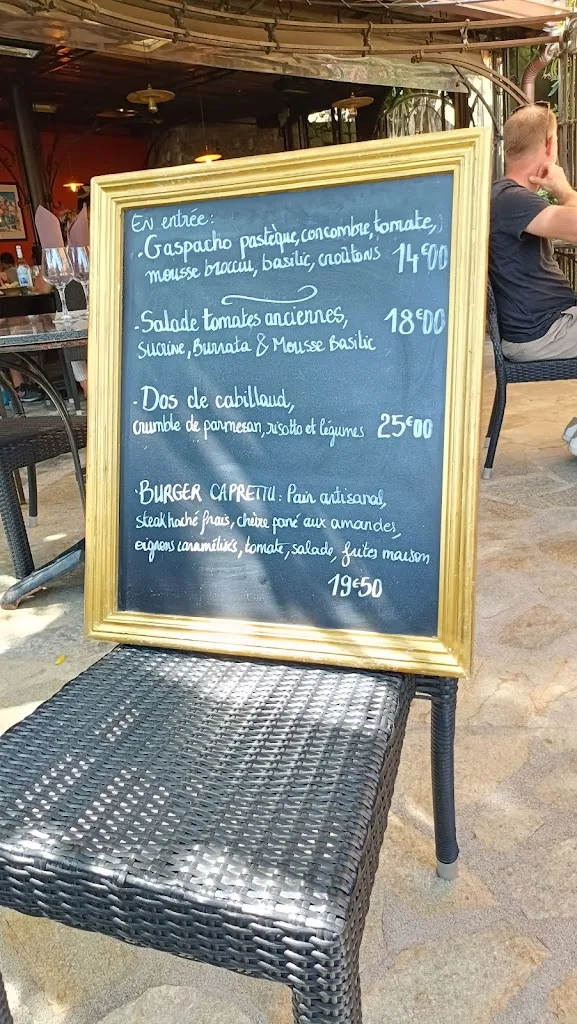 En entrée:
- Gaspacho pastèque, concombre, tomate,
mousse brocciu, basilic, croûtons 14€00
- Salade tomates anciennes, 18€00
sucrine, Burrata & Mousse Basilic
- Dos de cabillaud,
crumble de parmesan, risotto et légumes 25€00
- BURGER CAPRETTU: Pain artisanal,
steak haché frais, chèvre pané aux amandes,
oignons caramélisés, tomate, salade, frites maison
19€50